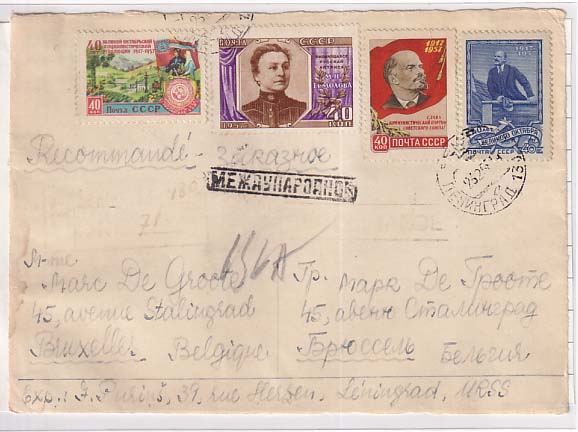 40 ЛЕТ
ВЕЛИКОЙ ОКТЯБРЬСКОЙ
СОЦИАЛИСТИЧЕСКОЙ
РЕВОЛЮЦИИ 1917-1957
40 КОП
ПОЧТА СССР
ПОЧТА СССР
ВЫДАЮЩАЯСЯ
РУССКАЯ
АКТРИСА
ЕРМОЛОВА
40
КОП
1917
1957
СЛАВА
КОММУНИСТИЧЕСКОЙ ПАРТИИ
СОВЕТСКОГО СОЮЗА!
40 КОП ПОЧТА СССР
1917-
ПОЧТА СССР
ЛЕНИНГРАД
Recommandé - Заказное
МЕЖДУНАРОДНОЕ
71
M-me
Marc De Groote
45, avenue Stalingrad
Bruxelles Belgique
Гр. Марк Де Грооте
45, авеню Сталинград
Брюссель Бельгия
Exp.: J. Purinš, 39, rue Herzen, Léningrad, URSS